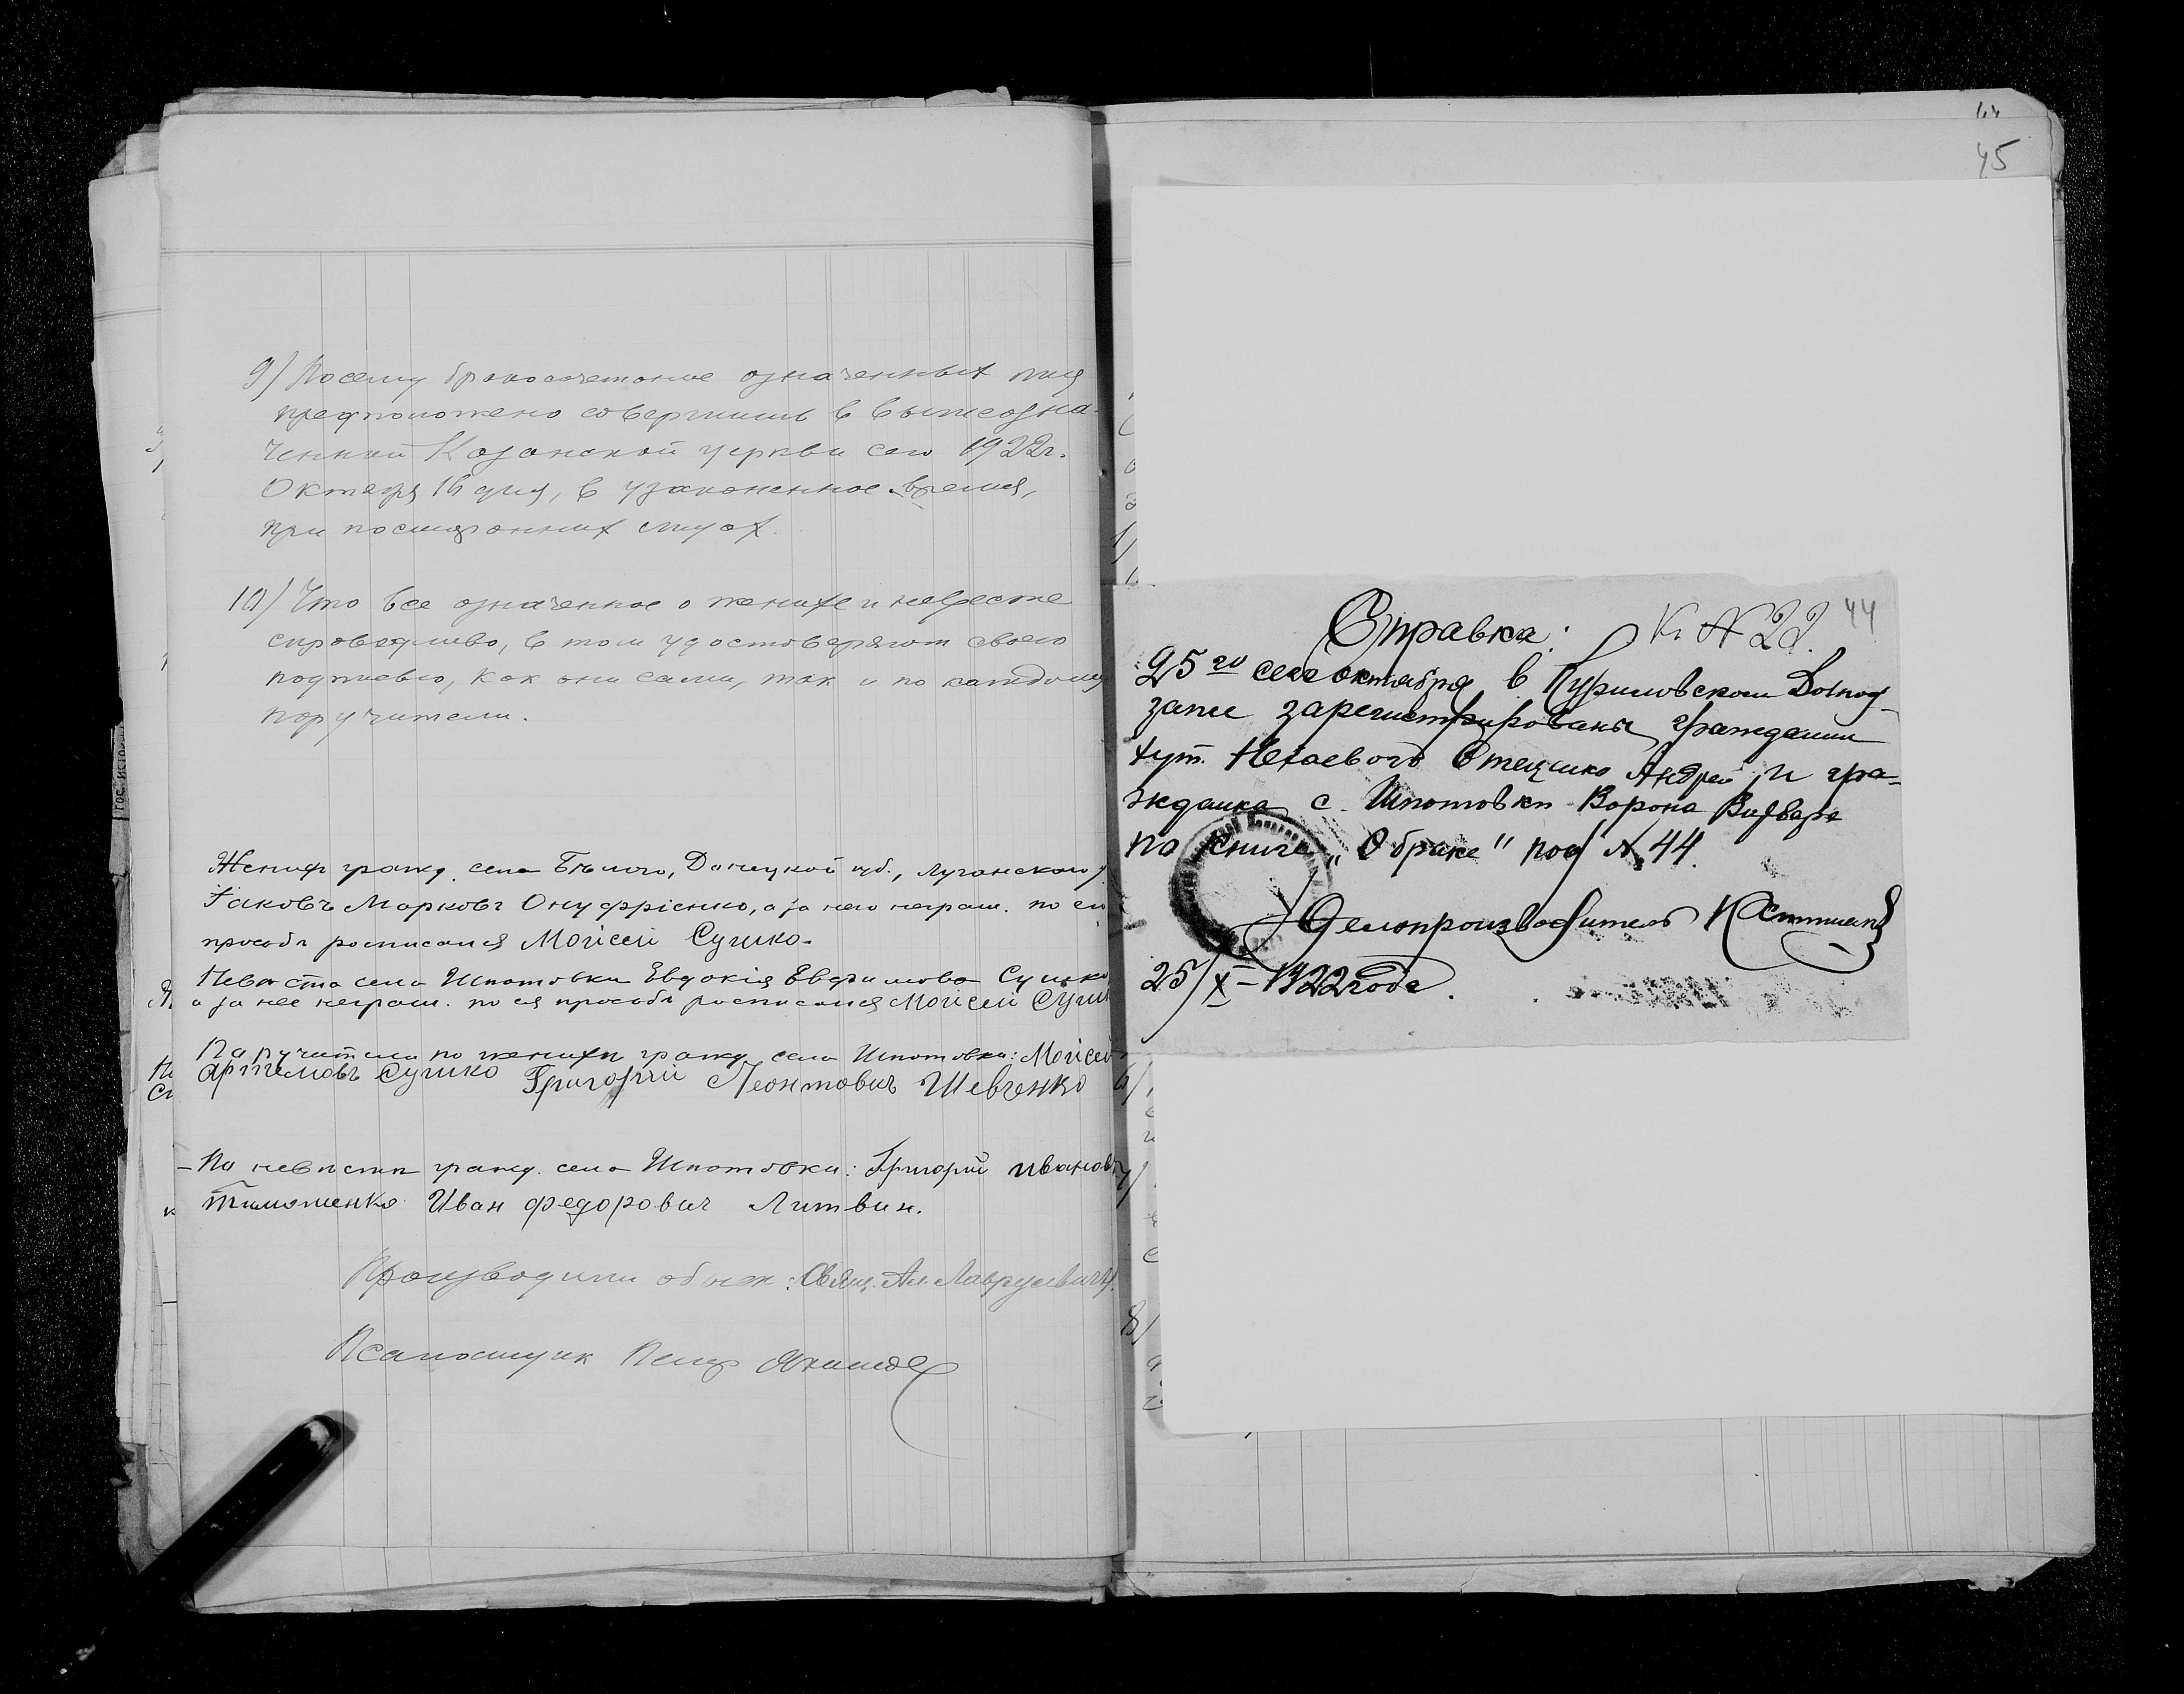 9) Посему бракосочетание означенных лиц
предположено совершить в вышеозна-
ченной Казанской церкви сего 1922г.
Октября 16 дня, в узаконенное время,
при посторонних лицах.
10) Что все означенное о женихе и невесте
справедливо, в том удостоверяют своею
подписью, как они сами, так и по каждому
поручители.
Жених гражд. села Бѣлого, Донецкой губ., Луганского у.
Іаковъ Марковъ Онуфріенко, а за него неграм. по его
просьбѣ росписался Моісей Сушко.
Невѣста села Шпотовки Евдокія Евфимова Сушко
а за нее неграм. по ея просьбѣ росписался Моісей Сушк
Поручители по женихѣ гражд. села Шпотовки: Моісей
Артемовъ Сушко Григорій Леонтович Шевченко
По невѣстѣ гражд. села Шпотовки: Григорій Иванов
Тимошенко Иван Федорович Литвин.
Производили обыск: Свящ. Ал. Лаврусевичъ.
Псаломщик Петр
45
44
Справка: К № 22.
25го сего октября в
загсе зарегистрированы гражданин
хут. Нехаевого Стецико Андрей и гра-
жданка с. Шпотовки Ворона Варвара
по книге „О браке" под № 44.
Делопроизводитель
25/X – 1922 года.